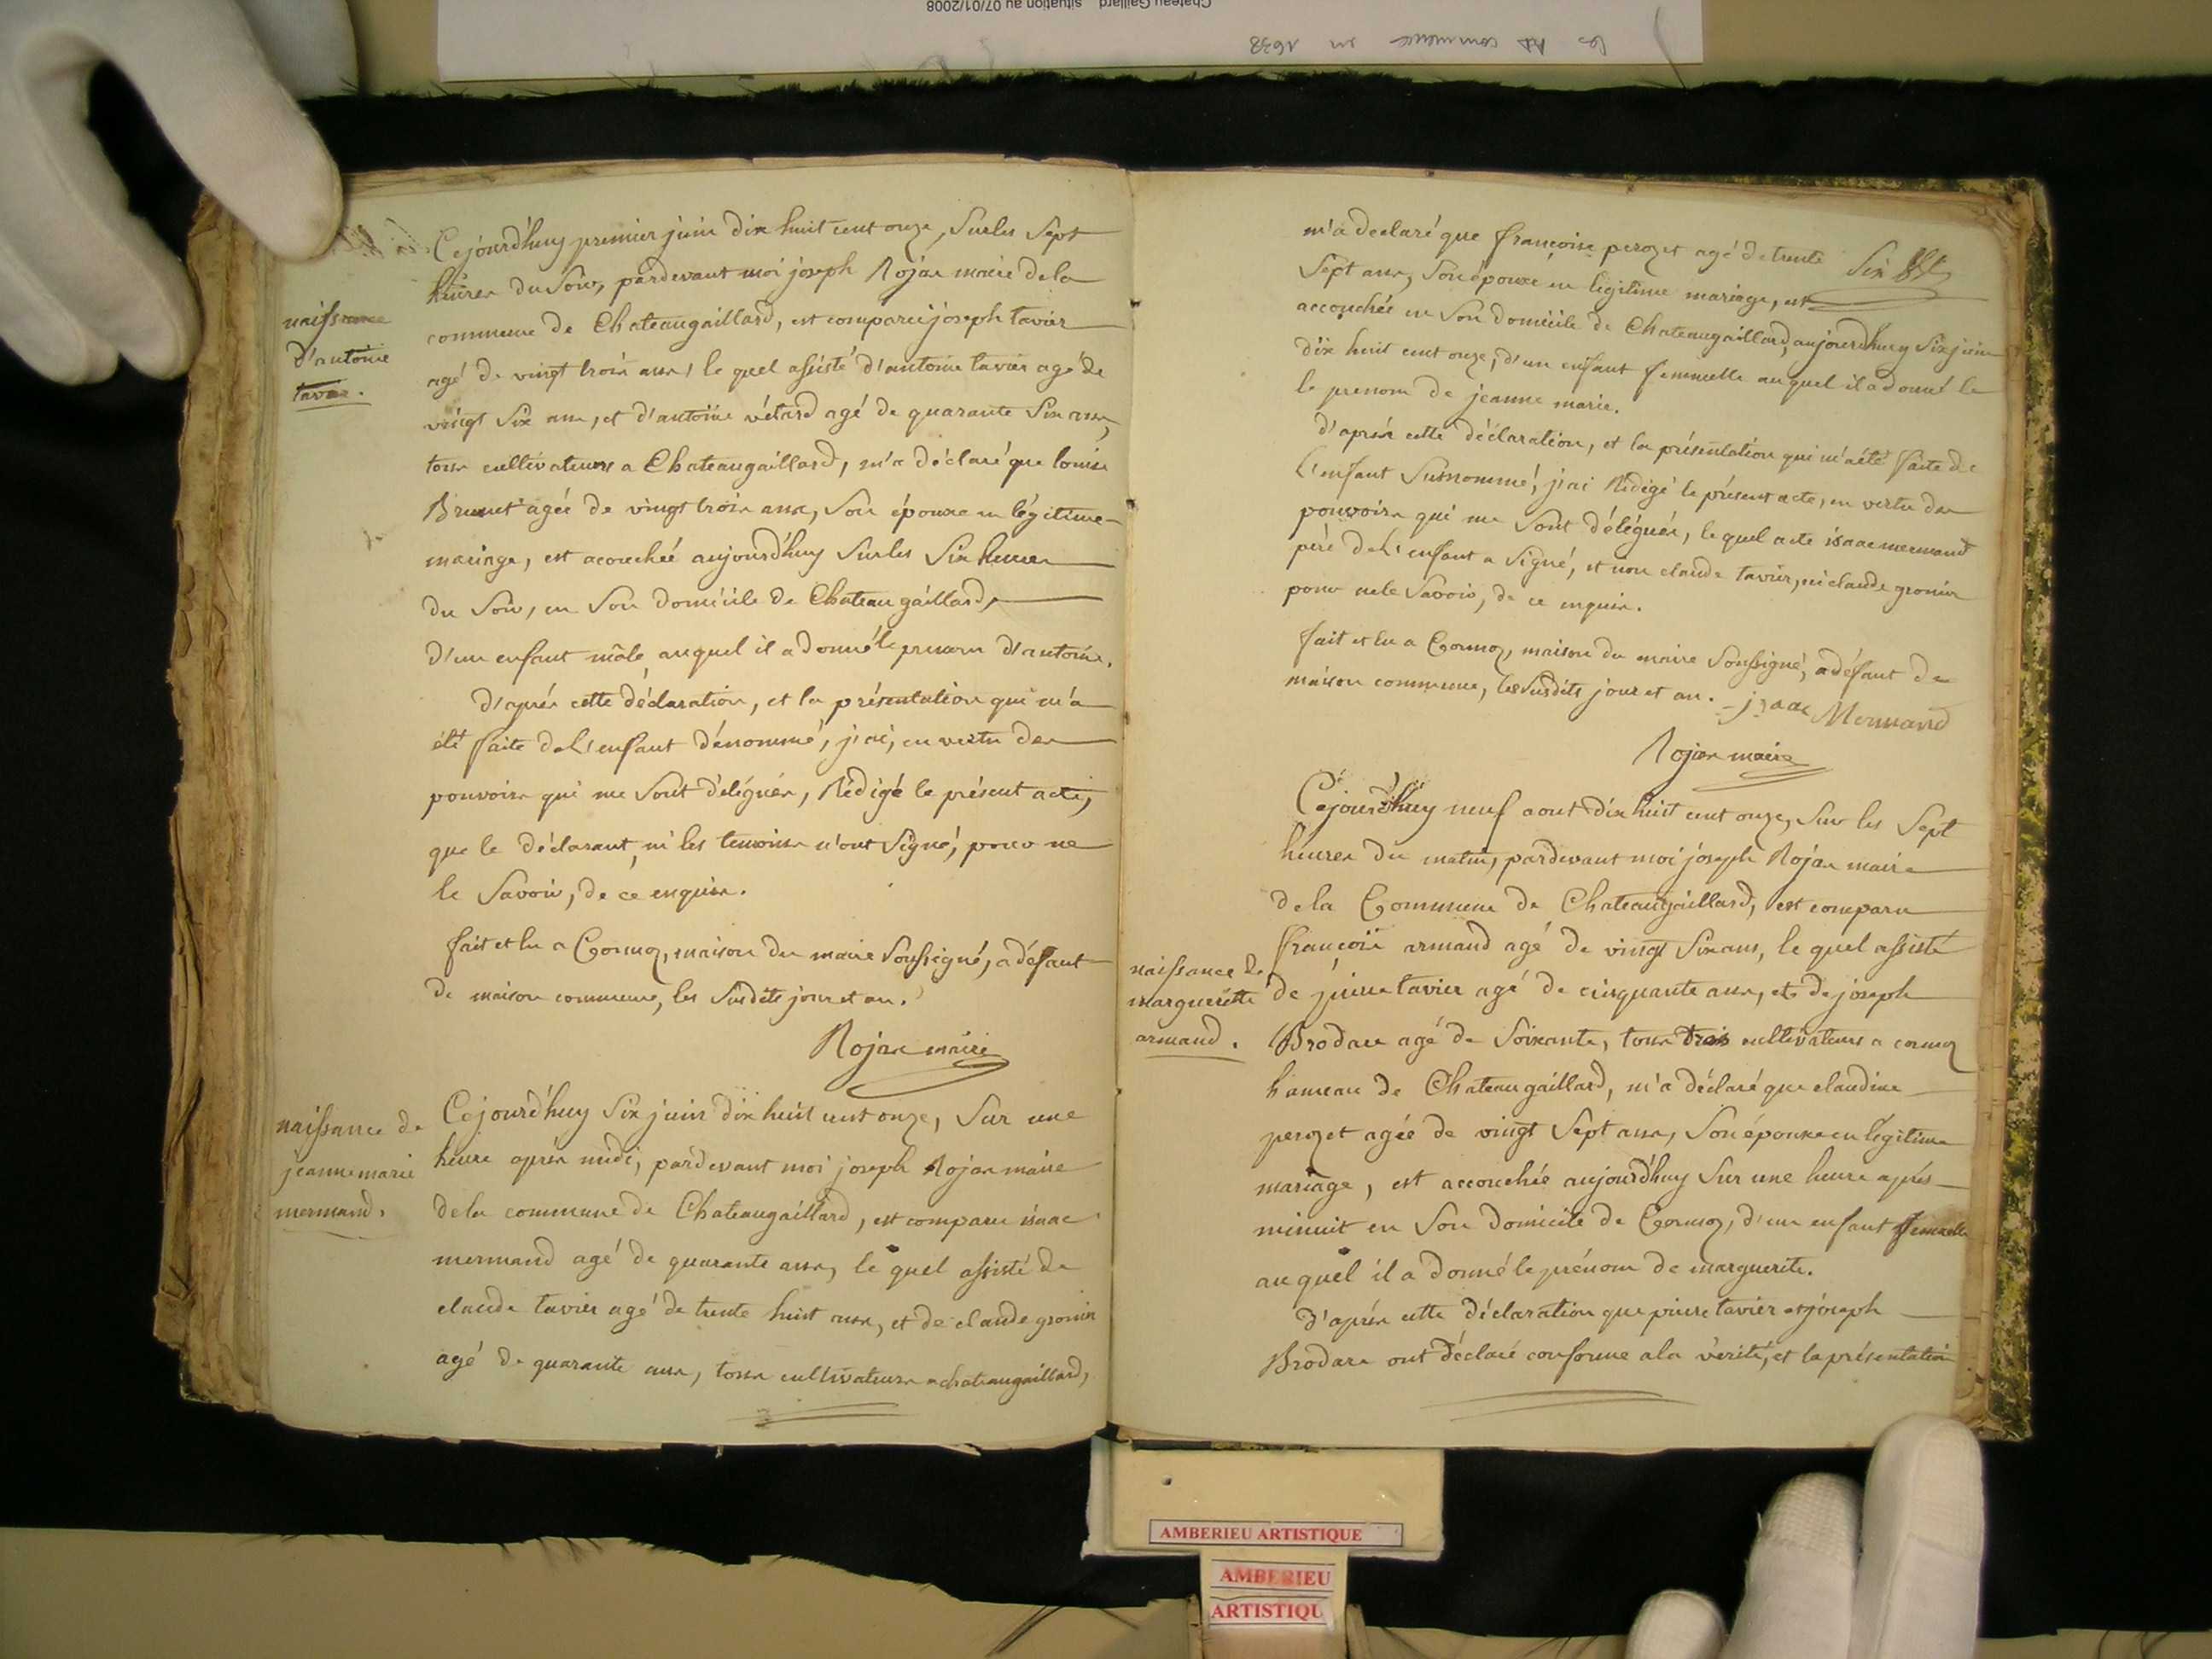 Chateau Gaillard situation au 07/01/2008
les commence en 1638
naissance
d'antoine
tavier.
Cejourd'huy premier juin dix huit cent onze, Sur les Sept
heures du Soir, pardevant moi joseph Rojas maire de la
commune de Chateaugaillard, est comparu joseph tavier
agé de vingt trois ans, le quel assisté d'antoine tavier agé de
vingt Six ans, et d'antoine vétard agé de quarante Six ans,
tous cultivateurs a Chateaugaillard, m'a déclaré que louise
Brunet agée de vingt trois ans, Son épouse en légitime
mariage, est acouchée aujourd'huy Sur les Six heures
du Soir, en Son domicile de Chateaugaillard,
d'un enfant mâle auquel il a donné le prenom d'antoine.
d'après cette déclaration, et la présentation qui m'a
été faite de l'enfant dénommé, j'ai, en vertu des
pouvoirs qui me Sont délégués, Rédigé le présent acte,
que le déclarant, ni les temoins n'ont Signé, pour ne
le Savoir, de ce enquis.
fait et lu a Cormoz, maison du maire Soussigné, a défaut
de maison commune, les Susdits jour et an.
Rojas maire
naissance de
jeanne marie
mermand.
Cejourd'huy Six juin dix huit cent onze, Sur une
heure après midi, pardevant moi joseph Rojas maire
de la commune de Chateaugaillard, est comparu isaac
mermand agé de quarante ans, le quel assisté de
claude tavier agé de trente huit ans, et de claude gronier
agé de quarante ans, tous cultivateurs a chateaugaillard,
Six
m'a declaré que françoise perozet agé de trente
Sept ans, Son épouse en légitime mariage, est
accouchée en Son domicile de Chateaugaillard, aujourd'huy Six juin
dix huit cent onze, d'un enfant femmelle auquel il a donné le
le prenom de jeanne marie.
d'après cette déclaration, et la présentation qui m'a été faite de
l'enfant Susnommé, j'ai Rédigé le présent acte, en vertu des
pouvoirs qui me Sont délégués, le quel acte isaac mermand
père de l'enfant a Signé, et non claude tavier, ni claude gronier
pour ne le Savoir, de ce enquis.
fait et lu a Cormoz, maison du maire Soussigné, a défaut de
maison commune, les Susdits jour et an. jsaac Mermand
Rojas maire
naissance de
marguerite
armand.
Cejourd'huy neuf aout dix huit cent onze, Sur les Sept
heures du matin, pardevant moi joseph Rojas maire
de la Commune de Chateaugaillard, est comparu
françois armand agé de vingt Six ans, le quel assisté
de pierre tavier agé de cinquante ans, et de joseph
Brodare agé de Soixante, tous trois cultivateurs a cormoz
hameau de Chateaugaillard, m'a déclaré que claudine
perozet agée de vingt Sept ans, Son épouse en légitime
mariage, est accouchée aujourd'huy Sur une heure après
minuit en Son domicile de Cormoz, d'un enfant femelle
au quel il a donné le prénom de marguerite.
d'après cette déclaration que pierre tavier et joseph
Brodare ont déclaré conforme a la vérité, et la présentation
AMBERIEU ARTISTIQUE
AMBERIEU
ARTISTIQU